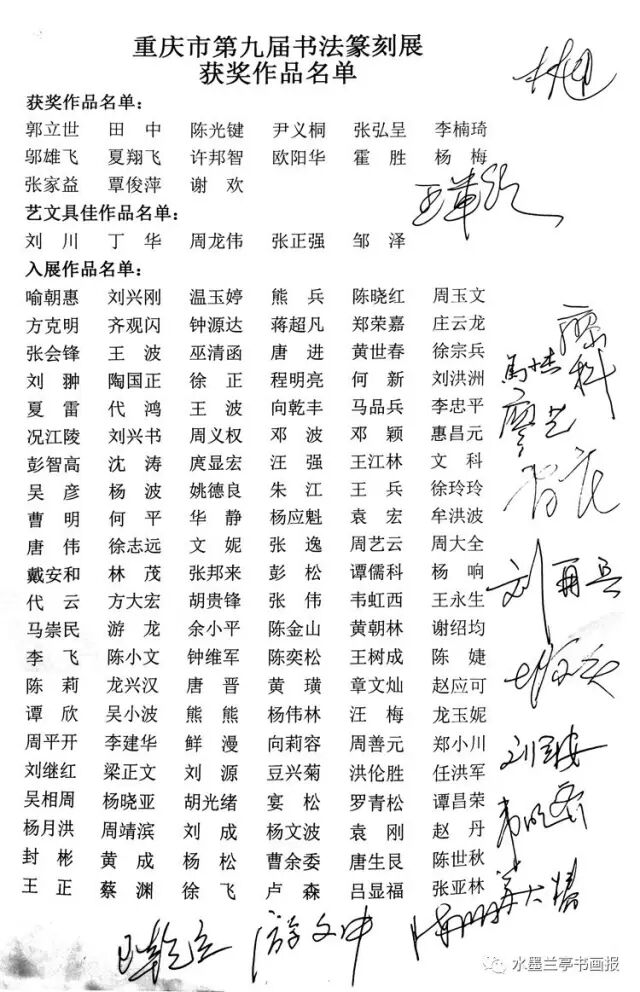 重庆市第九届书法篆刻展
获奖作品名单
获奖作品名单：
郭立世 田中 陈光键 尹义桐 张弘呈 李楠琦
邬雄飞 夏翔飞 许邦智 欧阳华 霍胜 杨梅
张家益 覃俊萍 谢欢
艺文具佳作品名单：
刘川 丁华 周龙伟 张正强 邹泽
入展作品名单：
喻朝惠 刘兴刚 温玉婷 熊兵 陈晓红 周玉文
方克明 齐观闪 钟源达 蒋超凡 郑荣嘉 庄云龙
张会锋 王波 巫清函 唐进 黄世春 徐宗兵
刘翀 陶国正 徐正 程明亮 何新 刘洪洲
夏雷 代鸿 王波 向乾丰 马品兵 李忠平
况江陵 刘兴书 周义权 邓波 邓颖 惠昌元
彭智高 沈涛 庹显宏 汪强 王江林 文科
吴彦 杨波 姚德良 朱江 王兵 徐玲玲
曹明 何平 华静 杨应魁 袁宏 牟洪波
唐伟 徐志远 文妮 张逸 周艺云 周大全
戴安和 林茂 张邦来 彭松 谭儒科 杨响
代云 方大宏 胡贵锋 张伟 韦虹西 王永生
马崇民 游龙 余小平 陈金山 黄朝林 谢绍均
李飞 陈小文 钟维军 陈奕松 王树成 陈婕
陈莉 龙兴汉 唐晋 黄璜 章文灿 赵应可
谭欣 吴小波 熊熊 杨伟林 汪梅 龙玉妮
周平开 李建华 鲜漫 向莉容 周善元 郑小川
刘继红 梁正文 刘源 豆兴菊 洪伦胜 任洪军
吴相周 杨晓亚 胡光绪 宴松 罗青松 谭昌荣
杨月洪 周靖滨 刘成 杨文波 袁刚 赵丹
封彬 黄成 杨松 曹余委 唐生艮 陈世秋
王正 蔡渊 徐飞 卢森 吕显福 张亚林
廖科
廖艺
刘再兵
游文中
水墨兰亭书画报